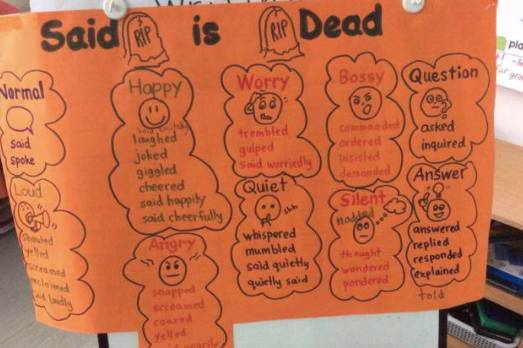 Said RIP is RIP Dead
Normal
said
spoke
Loud
shouted
yelled
screamed
exclaimed
said loudly
Happy
laughed
joked
giggled
cheered
said happily
said cheerfully
Angry
snapped
screamed
roared
yelled
Worry
trembled
gulped
said worriedly
Quiet
shh
whispered
mumbled
said quietly
quietly said
Bossy
commanded
ordered
insisted
demanded
Silent
nodded
thought
wondered
pondered
Question
asked
inquired
Answer
answered
replied
responded
explained
told